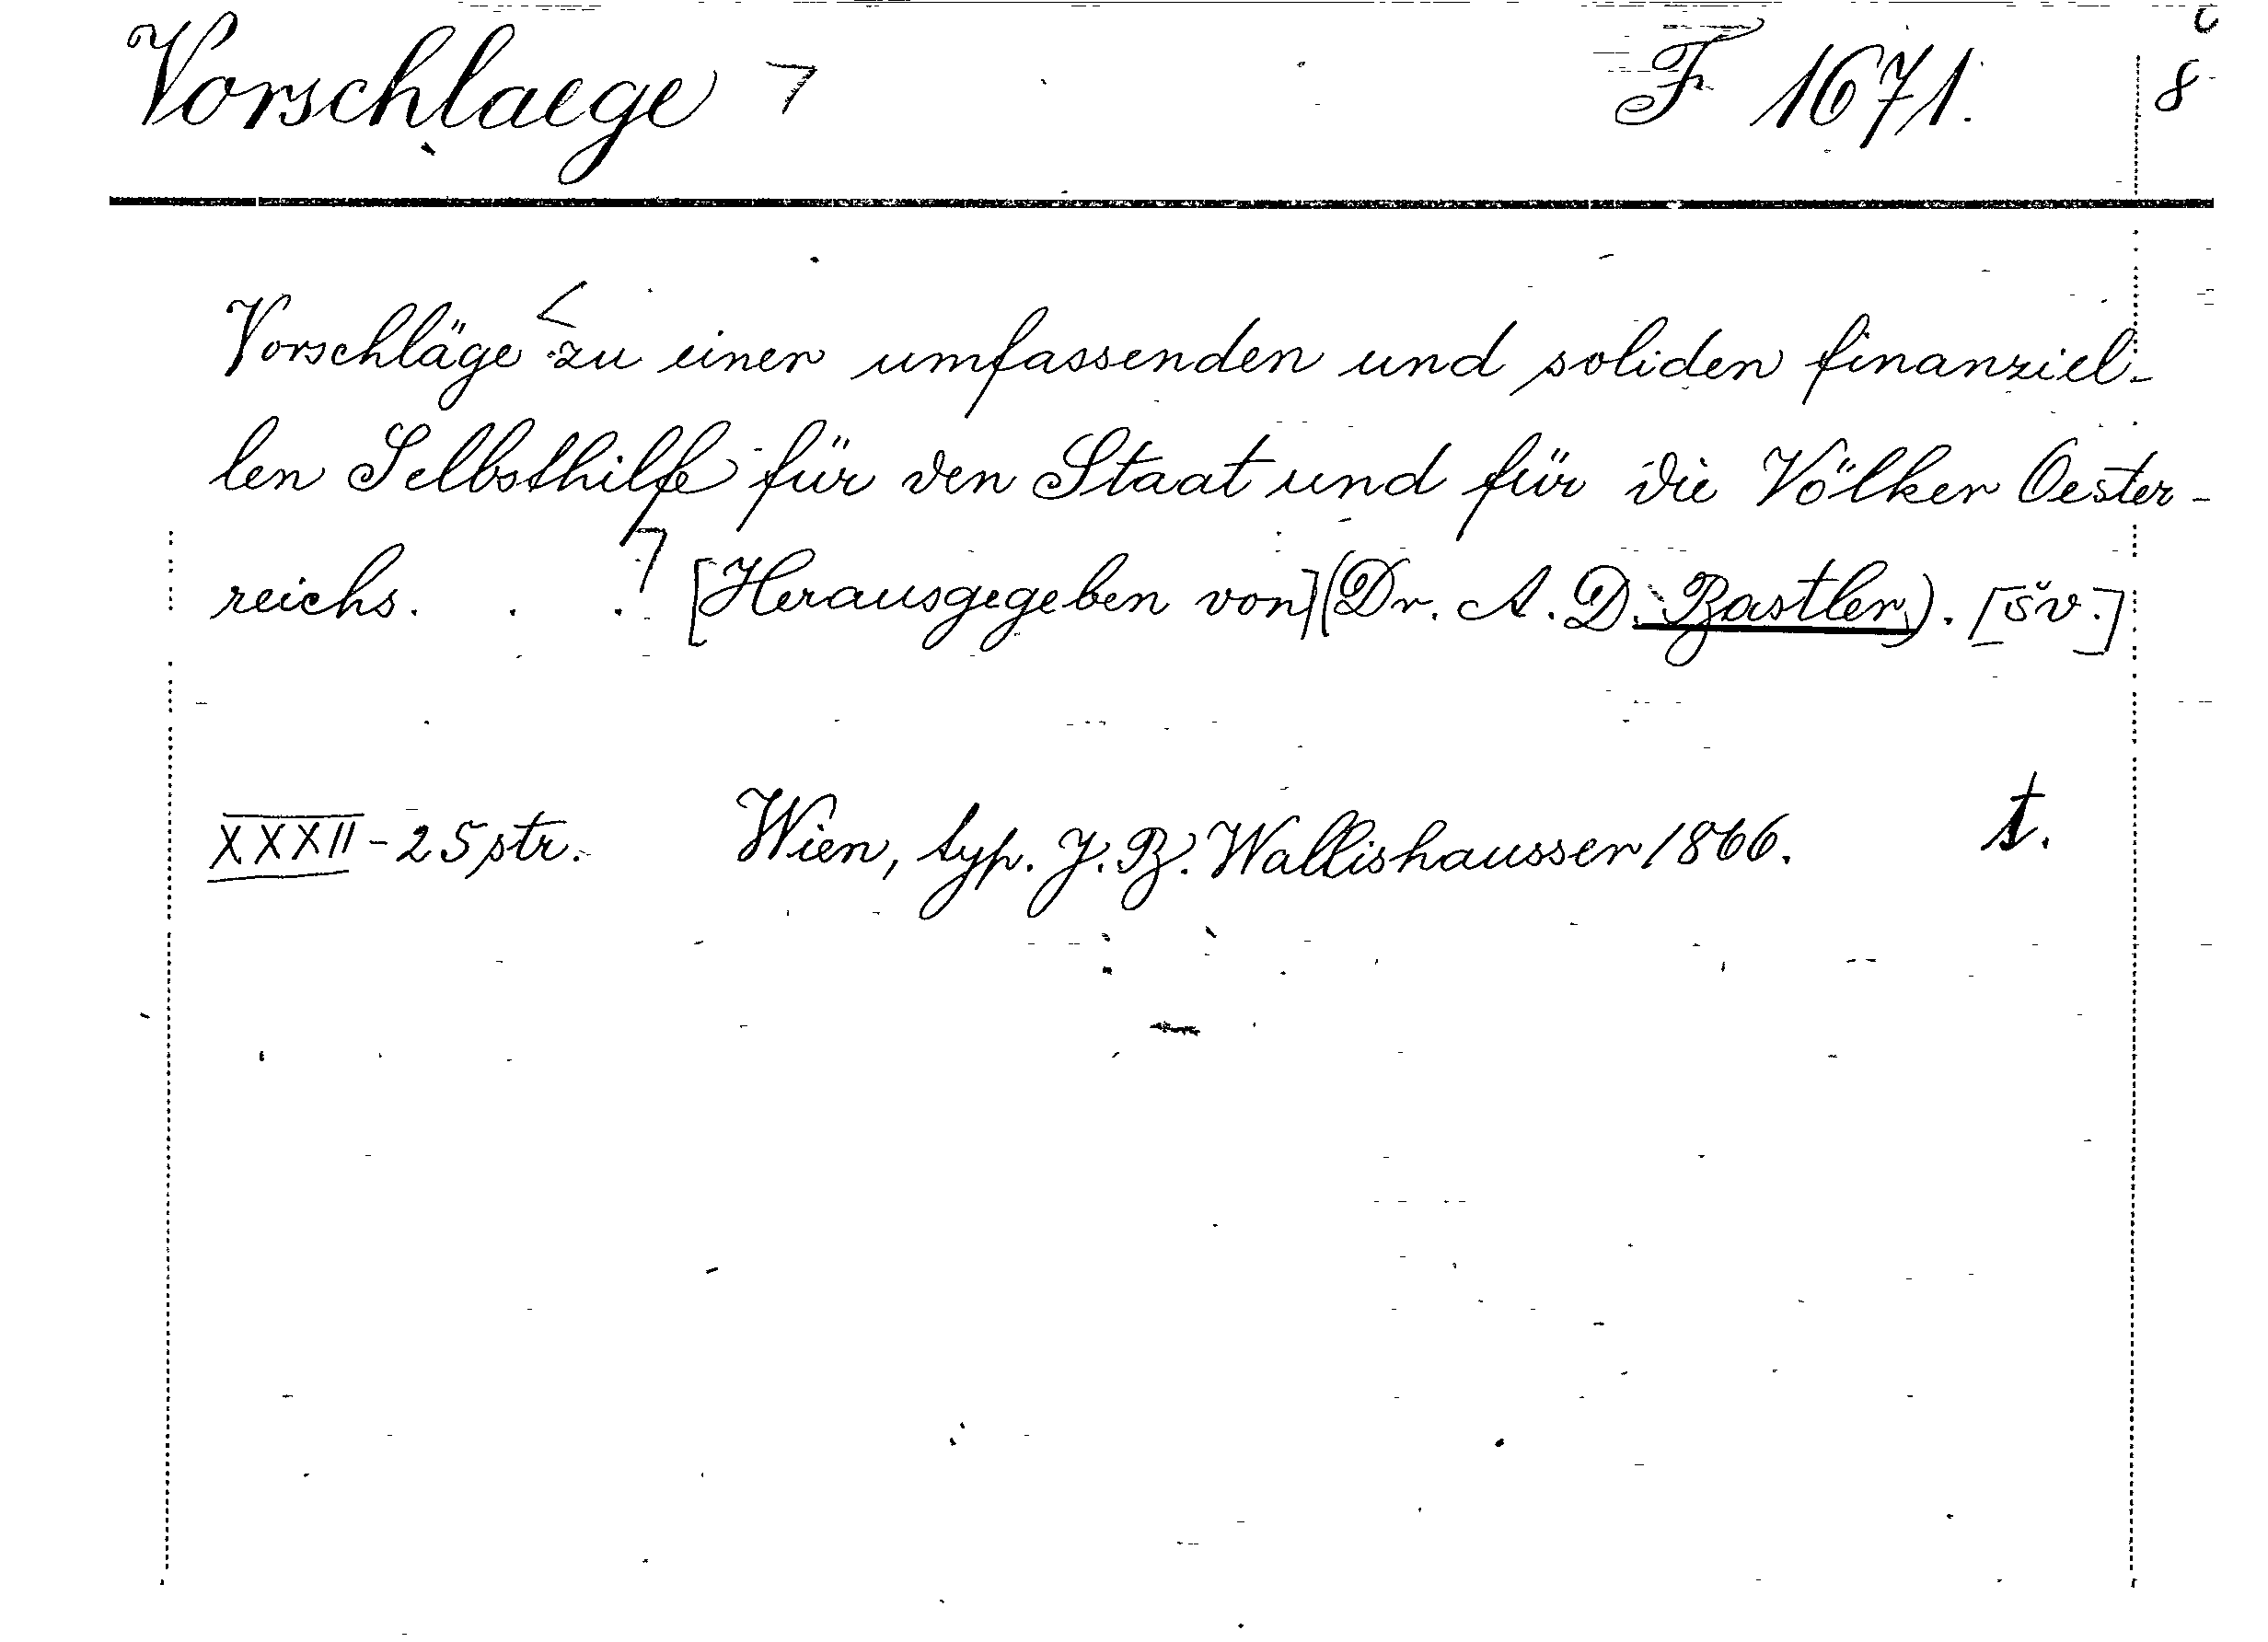 Vorschlaege ㄱ F 1671. 8
Vorschläge < zu einer umfassenden und soliden finanziel-
len Selbsthilfe für den Staat und für die Völker Oester-
reichs. . . ㄱ [Herausgegeben von] (Dr. A. D. Bastler). [šv.]
XXXII - 25 str. Wien, typ. J. B. Wallishausser 1866. t.